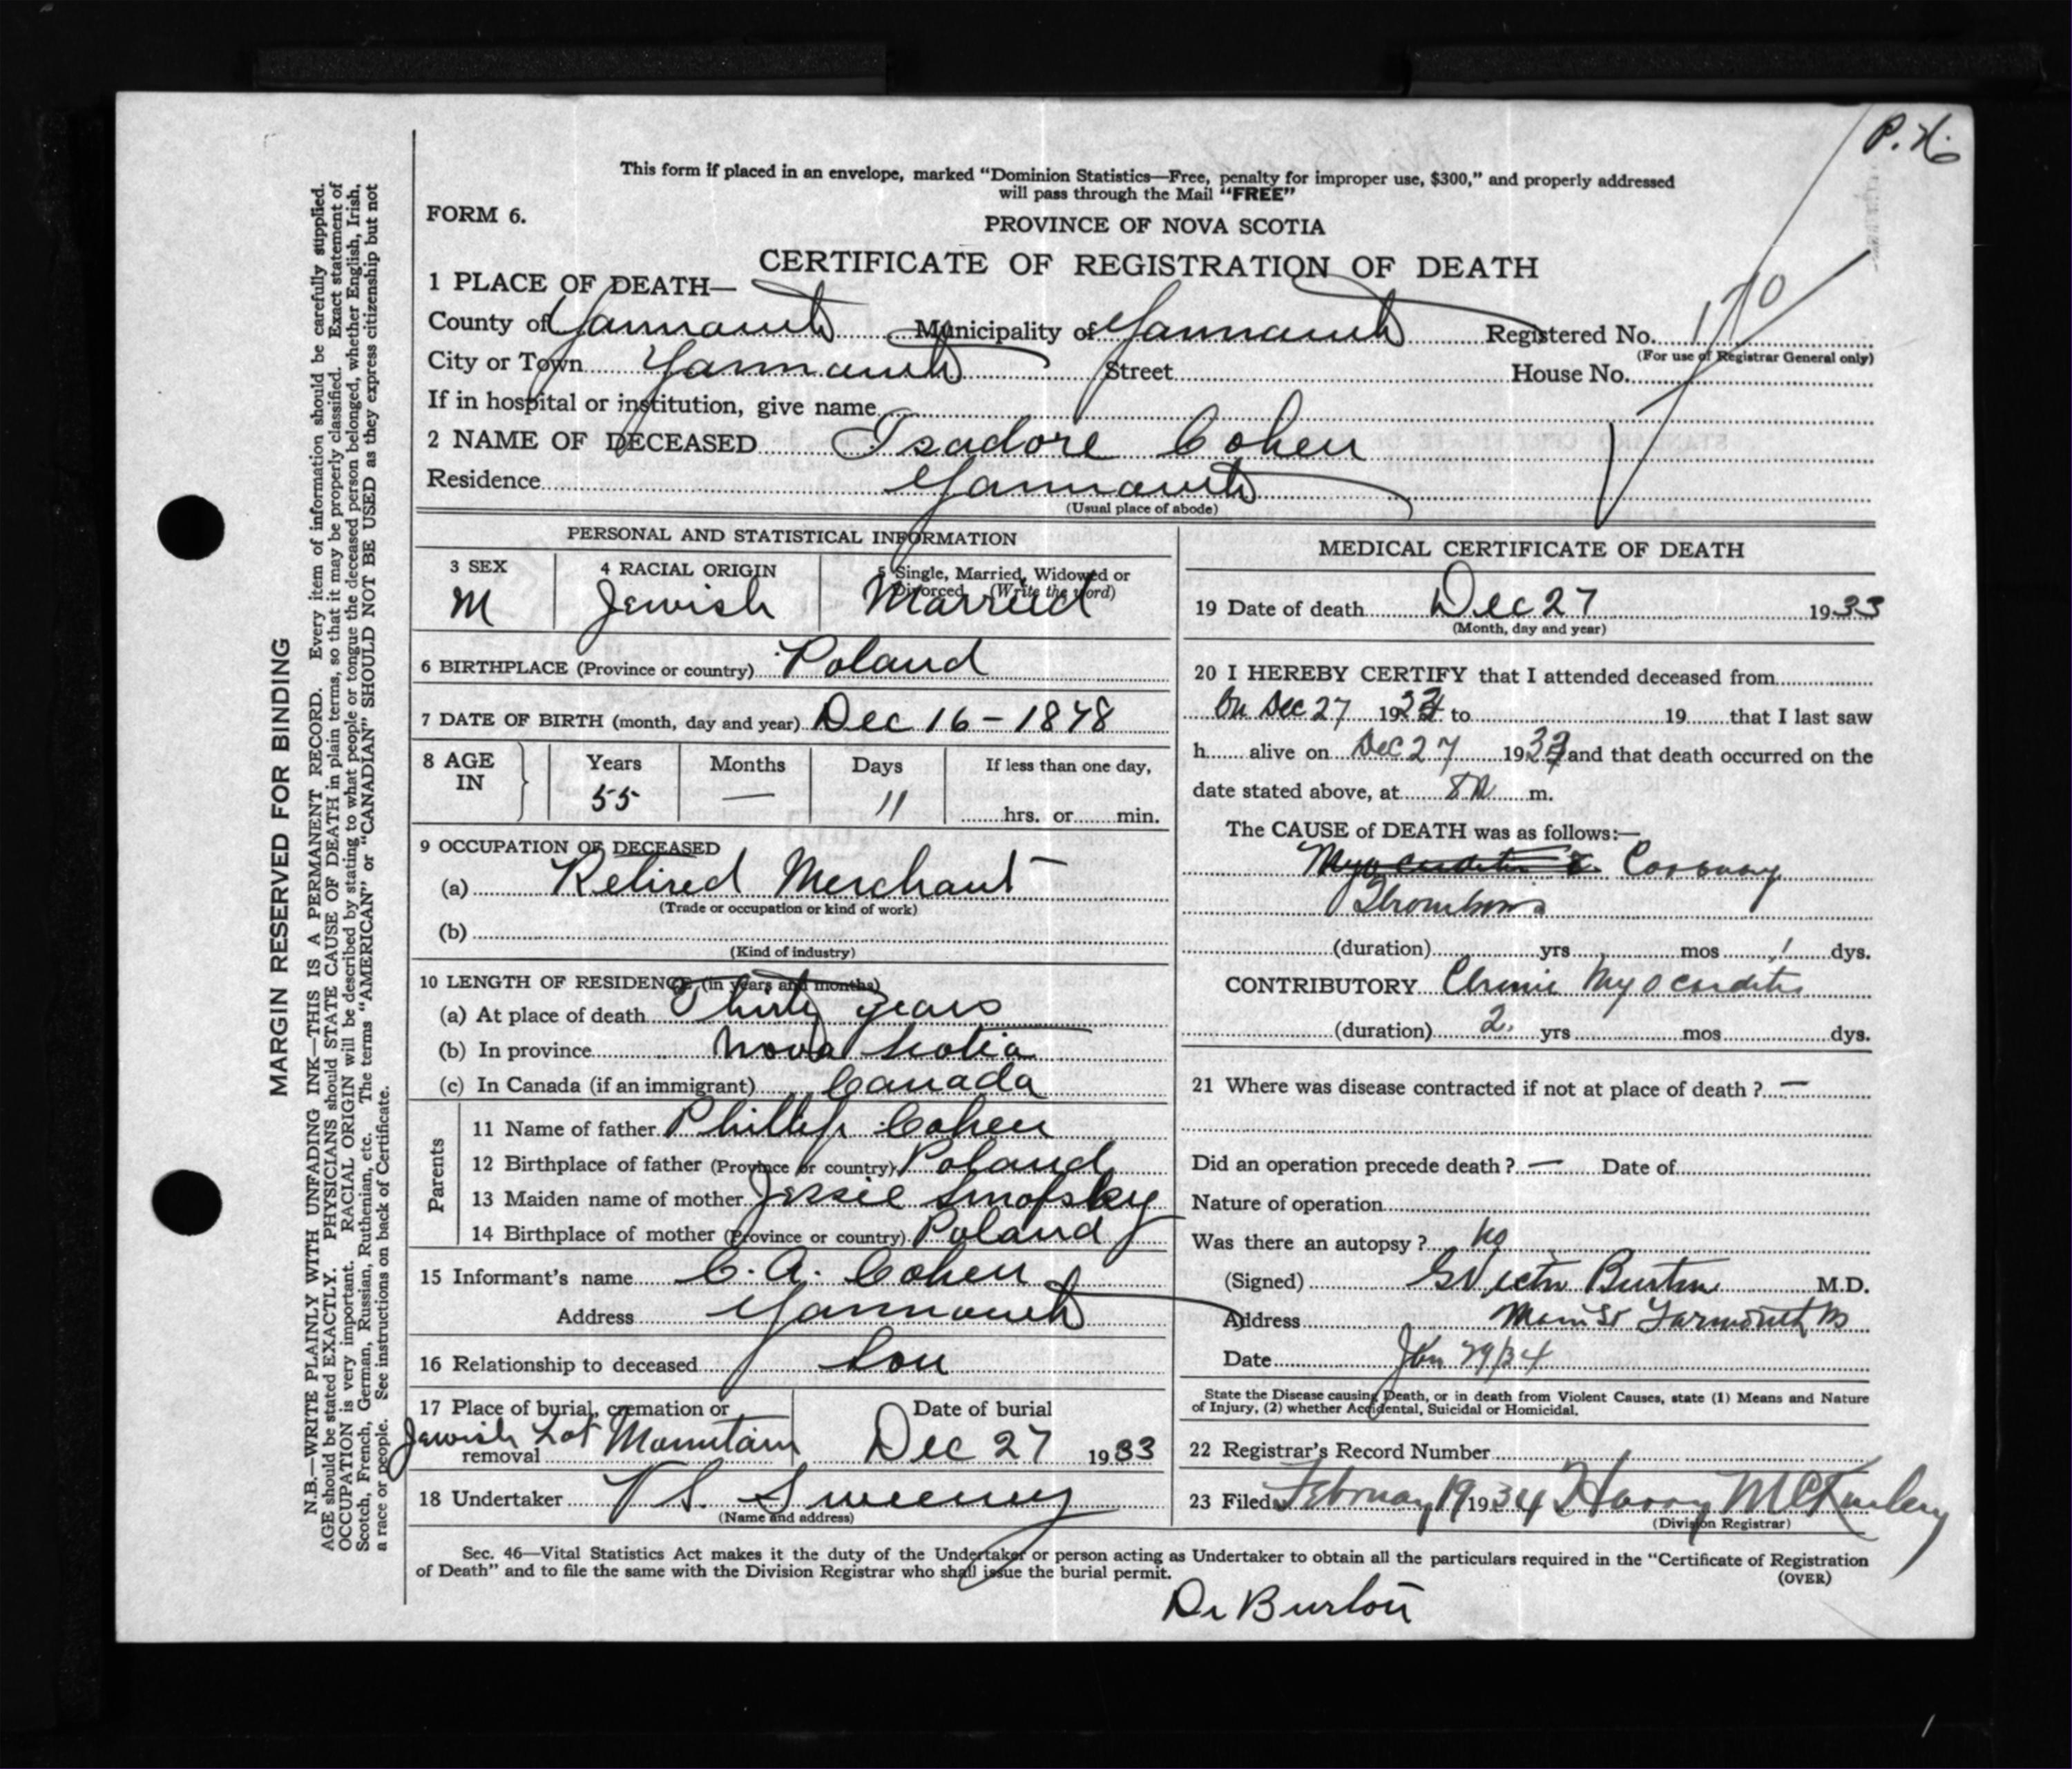 P. H.
This form if placed in an envelope, marked “Dominion Statistics—Free, penalty for improper use, $300,” and properly addressed
will pass through the Mail “FREE”
FORM 6.
PROVINCE OF NOVA SCOTIA
CERTIFICATE OF REGISTRATION OF DEATH
1 PLACE OF DEATH—
County of Yarmouth Municipality of Yarmouth Registered No. 170
(For use of Registrar General only)
City or Town Yarmouth Street House No.
If in hospital or institution, give name
2 NAME OF DECEASED Isadore Cohen
Residence Yarmouth
(Usual place of abode)
PERSONAL AND STATISTICAL INFORMATION
3 SEX 4 RACIAL ORIGIN 5 Single, Married, Widowed or
Divorced (Write the word)
M Jewish Married
6 BIRTHPLACE (Province or country) Poland
7 DATE OF BIRTH (month, day and year) Dec 16 - 1878
8 AGE IN Years Months Days If less than one day,
55 — 11 hrs. or min.
9 OCCUPATION OF DECEASED
(a) Retired Merchant
(Trade or occupation or kind of work)
(b)
(Kind of industry)
10 LENGTH OF RESIDENCE (in years and months)
(a) At place of death Thirty years
(b) In province Nova Scotia
(c) In Canada (if an immigrant) Canada
Parents
11 Name of father Phillip Cohen
12 Birthplace of father (Province or country) Poland
13 Maiden name of mother Jessie Smofsky
14 Birthplace of mother (Province or country) Poland
15 Informant’s name C. A. Cohen
Address Yarmouth
16 Relationship to deceased Son
17 Place of burial, cremation or Date of burial
Jewish Lot Mountain
removal Dec 27 1933
18 Undertaker V S. Sweeney
(Name and address)
MEDICAL CERTIFICATE OF DEATH
19 Date of death Dec 27 1933
(Month, day and year)
20 I HEREBY CERTIFY that I attended deceased from
On Dec 27 1933 to 19 that I last saw
h alive on Dec 27 1933 and that death occurred on the
date stated above, at m.
The CAUSE of DEATH was as follows:—
Myocarditis & Coronary
Thrombosis
(duration) yrs mos 1 dys.
CONTRIBUTORY Chronic Myocarditis
(duration) 2 yrs mos dys.
21 Where was disease contracted if not at place of death? —
Did an operation precede death? — Date of
Nature of operation
Was there an autopsy? no
(Signed) G Victor Burton M.D.
Address Main St Yarmouth NS
Date Jan 29/34
State the Disease causing Death, or in death from Violent Causes, state (1) Means and Nature
of Injury, (2) whether Accidental, Suicidal or Homicidal.
22 Registrar’s Record Number
23 Filed February 19 1934 Harry McKinley
(Division Registrar)
Sec. 46—Vital Statistics Act makes it the duty of the Undertaker or person acting as Undertaker to obtain all the particulars required in the “Certificate of Registration
of Death” and to file the same with the Division Registrar who shall issue the burial permit.
(OVER)
Dr Burton
MARGIN RESERVED FOR BINDING
N.B.—WRITE PLAINLY WITH UNFADING INK—THIS IS A PERMANENT RECORD. Every item of information should be carefully supplied.
AGE should be stated EXACTLY. PHYSICIANS should STATE CAUSE OF DEATH in plain terms, so that it may be properly classified. Exact statement of
OCCUPATION is very important. RACIAL ORIGIN will be described by stating to what people or tongue the deceased person belonged, whether English, Irish,
Scotch, French, German, Russian, Ruthenian, etc. The terms “AMERICAN” or “CANADIAN” SHOULD NOT BE USED as they express citizenship but not
a race or people. See instructions on back of Certificate.